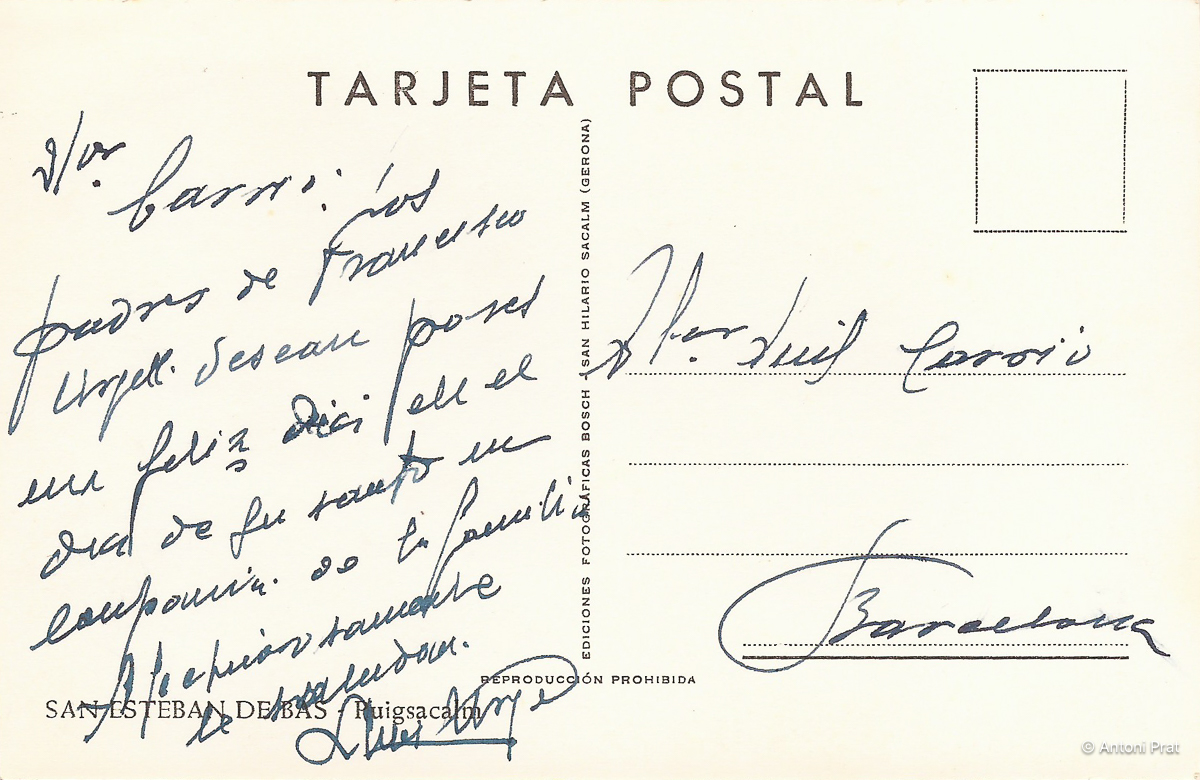 TARJETA POSTAL
Sr. Carrio: Los
padres de Francisco
Urgell. desean pases
un feliz dia en el
dia de su santo en
compania. de la familia
Afectuosamente
le saludan.
Luis Urge
SAN ESTEBAN DE BAS - Puigsacalm
EDICIONES FOTOGRÁFICAS BOSCH - (SAN HILARIO SACALM (GERONA)
REPRODUCCIÓN PROHIBIDA
Sr. Luis Carrio
Barcelona
© Antoni Prat